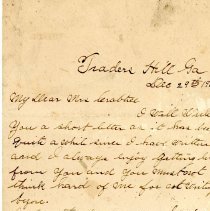 Traders Hill Ga
Dec 29th 19
My Dear Mrs Crabtree
I Will Write
You a short letter as it has be
Quit a while Since I have written
and I always Enjoy getting le
from You and You Must not
think hard of Me for not Writ
before